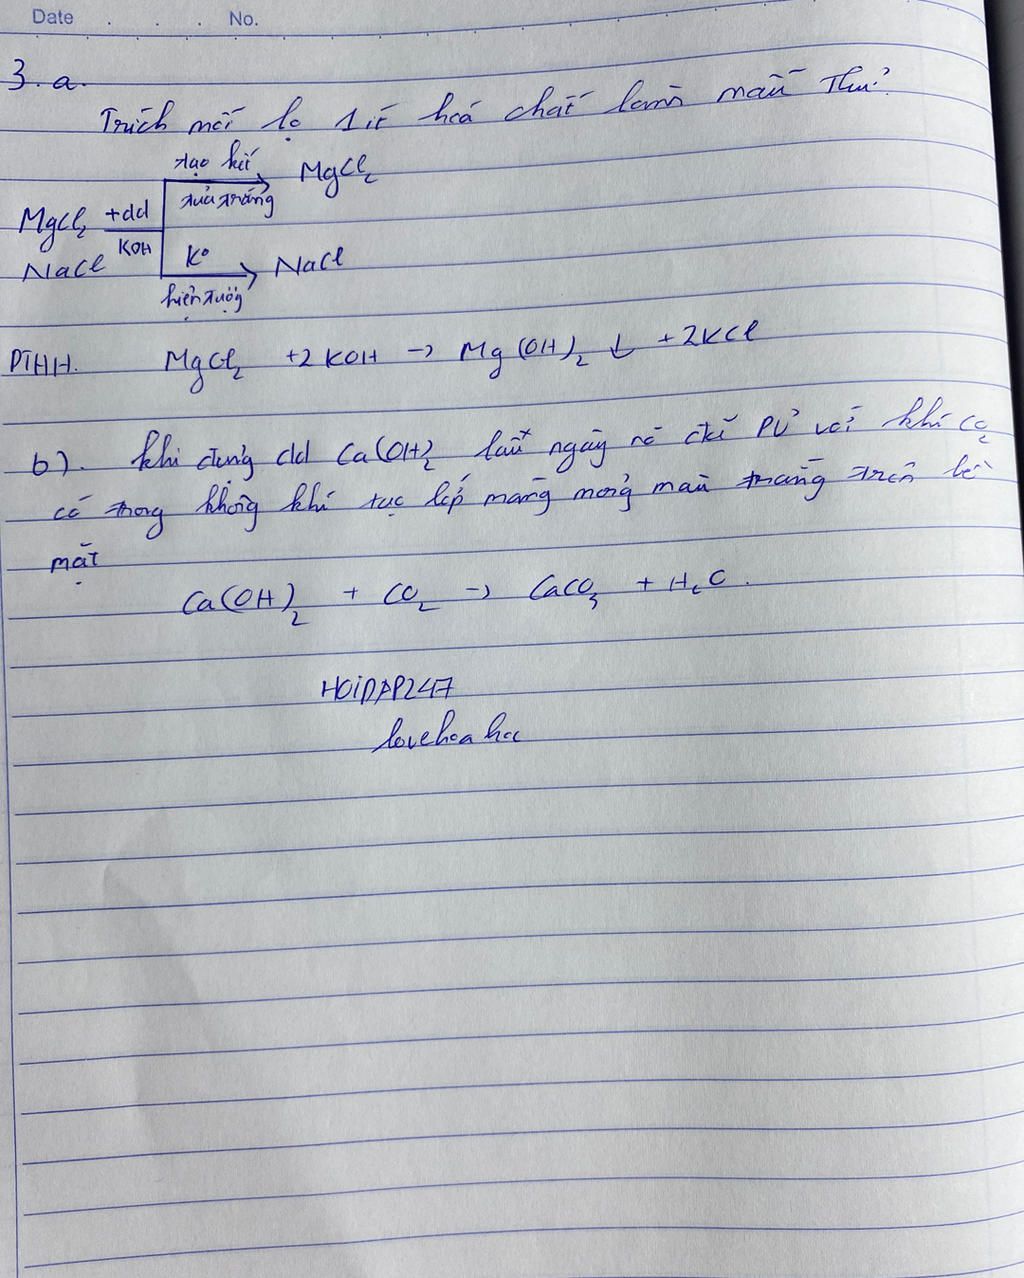 Date . . . No.
3. a.
Trích mỗi lọ 1 ít hoá chất làm mẫu thử
tạo kết
MgCl₂
tủa trắng
MgCl₂ +dd
KOH
NaCl
K°
NaCl
hiện tượng
PTHH. MgCl₂ +2 KOH → Mg(OH)₂ ↓ +2KCl
b). Khi đựng dd Ca(OH)₂ lâu ngày nó để PƯ với khí CO₂
có trong không khí tạo lớp màng mỏng màu trắng trên bề
mặt
Ca(OH)₂ + CO₂ → CaCO₃ + H₂O.
HOIDAP247
lovehoahoc